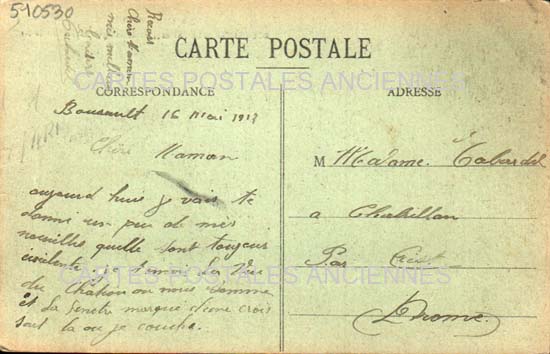 510530
Reçois
Chère Maman
mes meilleurs
CARTE POSTALE
CARTES POSTALES ANCIENNES
CORRESPONDANCE
ADRESSE
16 Mai 1913
Chère Maman
aujourd huie je vais te
donné un peu de mes
nouvelles quelle sont toujour
la Vue
du Chateau ou nous somme
et la fenetre marqué d'une crois
sont la ou je couche.
M Madame Tabardel
a Chabrillan
Par Crest
Drome
CARTES POSTALES ANCIENNES